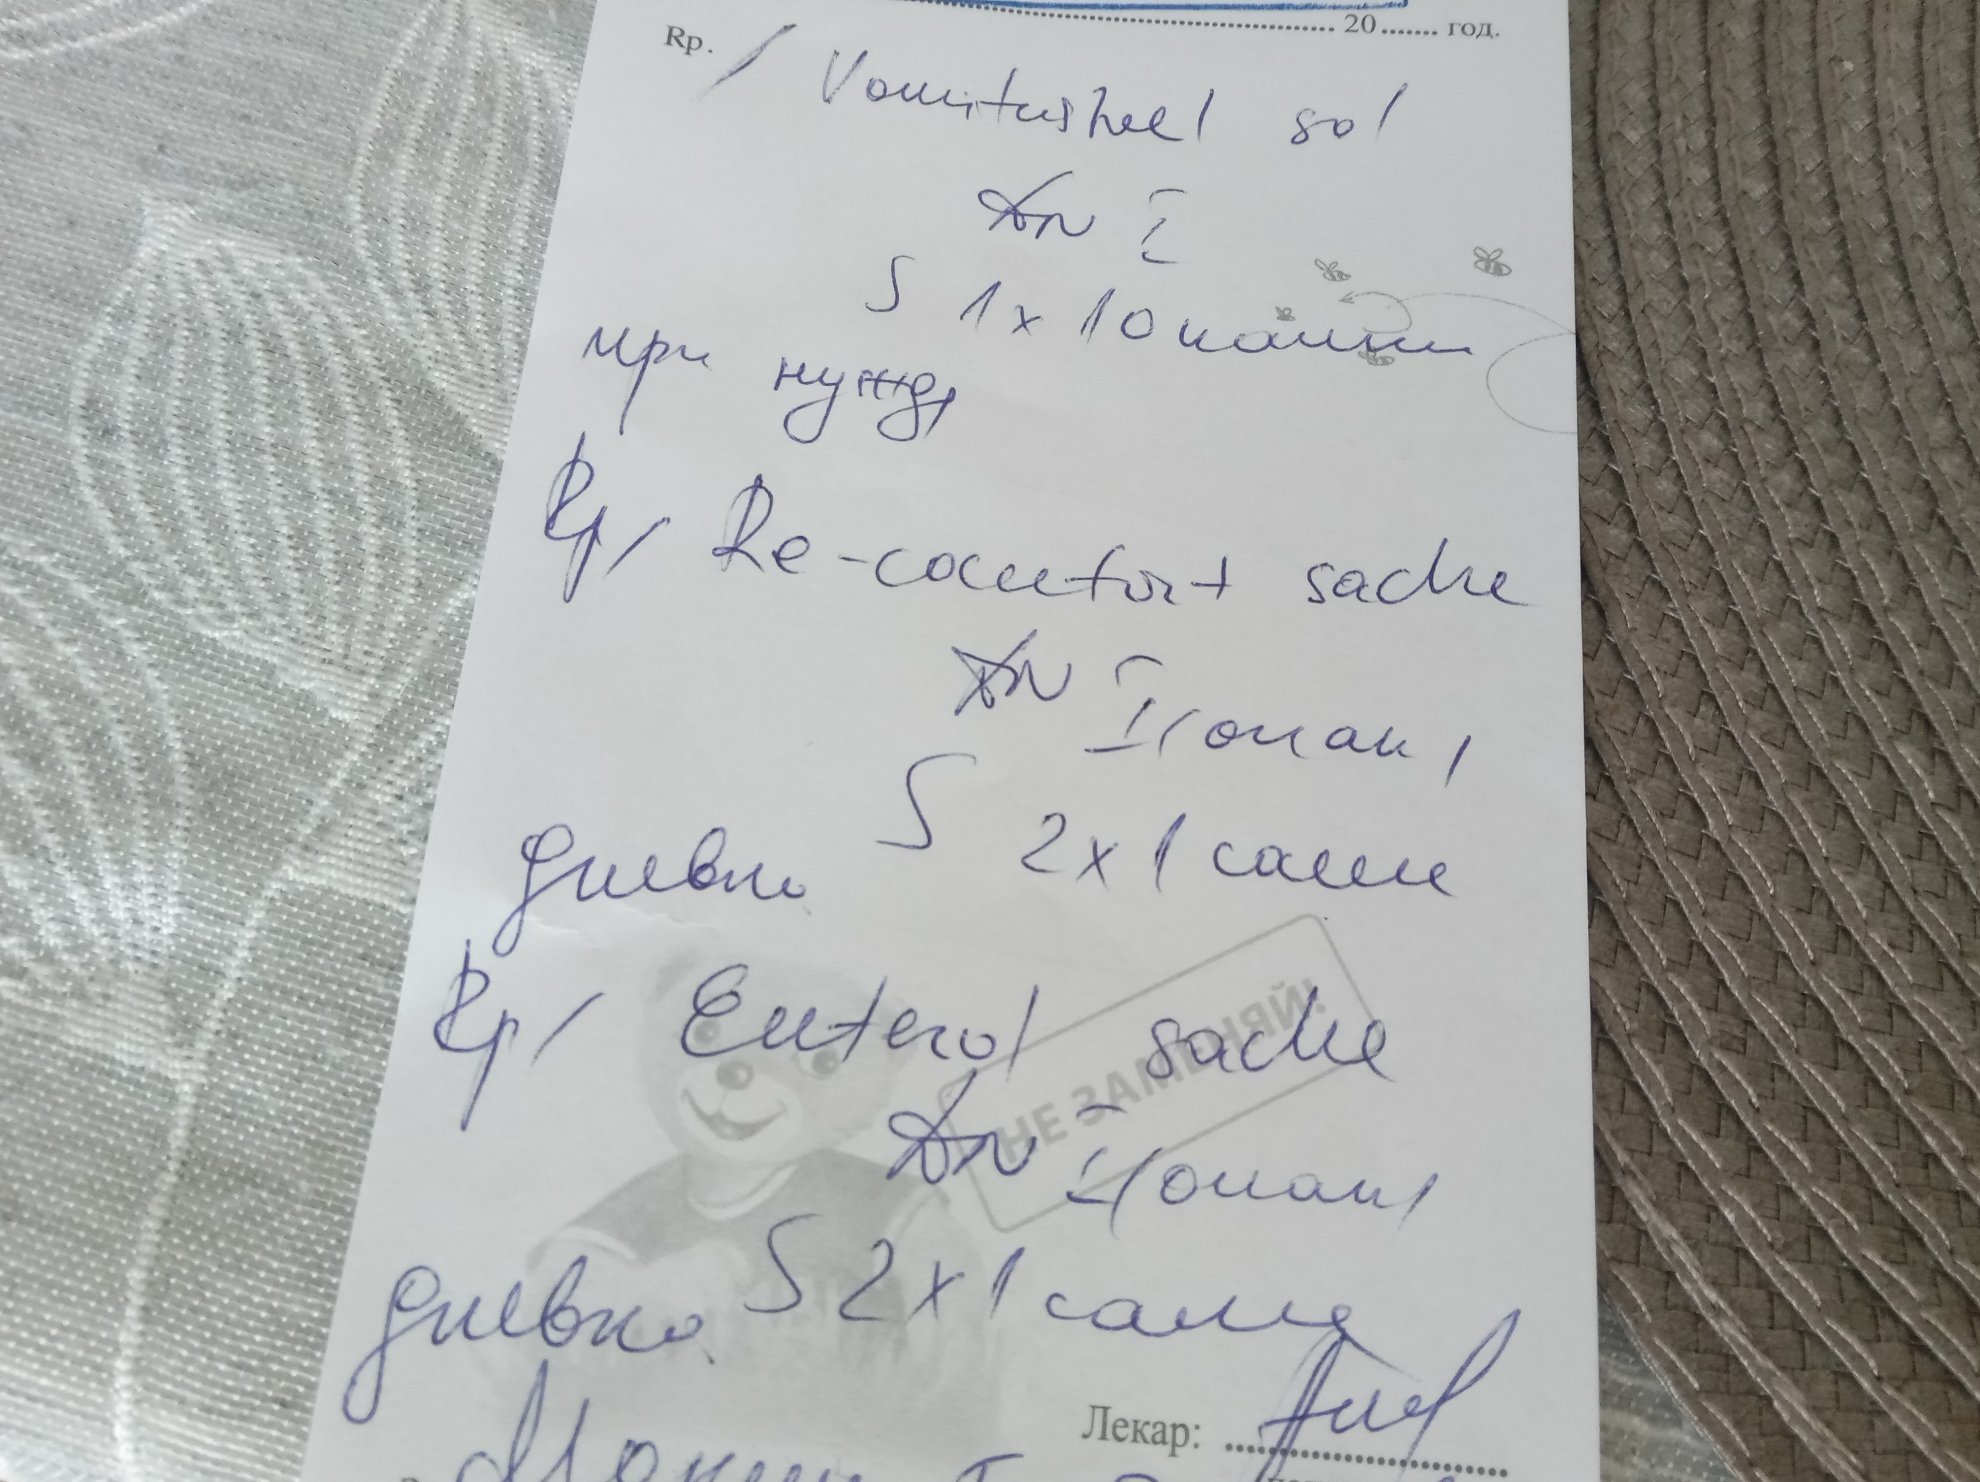 20....... год.
Rp. / Vomitusheel sol
DN I
S 1x10 капки
при нужда
Rp/ Re-comfort sache
DN I (опак)
S 2x1 саше
дневно
Rp/ Enterol sache
НЕ ЗАМЕНЯЙ!
DN I (опак)
S 2x1 саше
дневно
Лекар: